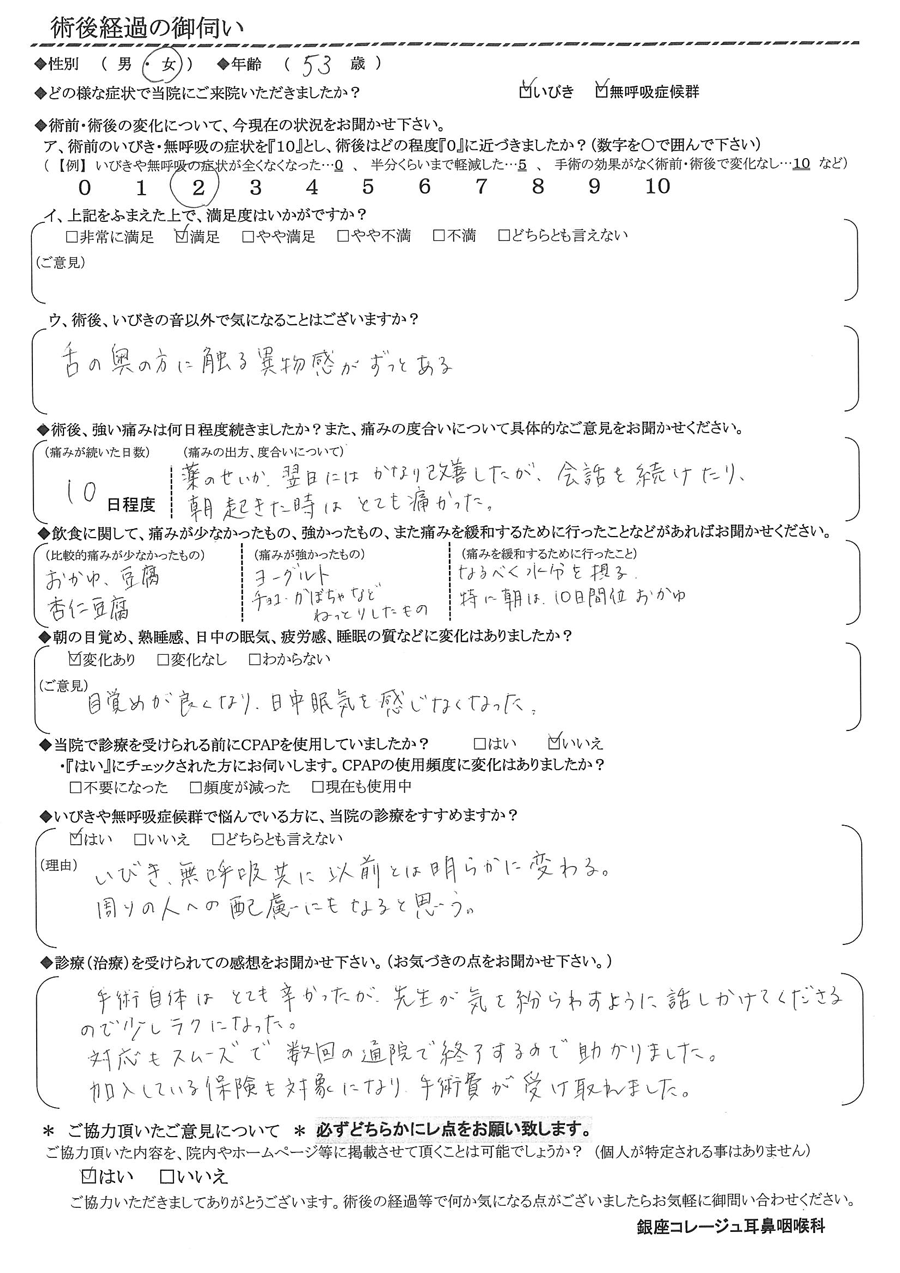 術後経過の御伺い
◆性別 ( 男 ・ 女 ) ◆年齢 ( 53 歳 )
◆どの様な症状で当院にご来院いただきましたか? ☑いびき ☑無呼吸症候群
◆術前・術後の変化について、今現在の状況をお聞かせ下さい。
ア、術前のいびき・無呼吸の症状を『10』とし、術後はどの程度『0』に近づきましたか?(数字を〇で囲んで下さい)
(【例】 いびきや無呼吸の症状が全くなくなった…0 、 半分くらいまで軽減した…5 、 手術の効果がなく術前・術後で変化なし…10 など)
0 1 2 3 4 5 6 7 8 9 10
イ、上記をふまえた上で、満足度はいかがですか?
□非常に満足 ☑満足 □やや満足 □やや不満 □不満 □どちらとも言えない
(ご意見)
ウ、術後、いびきの音以外で気になることはございますか?
舌の奥の方に触る異物感がずっとある
◆術後、強い痛みは何日程度続きましたか?また、痛みの度合いについて具体的なご意見をお聞かせください。
(痛みが続いた日数) (痛みの出方、度合いについて)
10 日程度
薬のせいか、翌日にはかなり改善したが、会話を続けたり、
朝起きた時はとても痛かった。
◆飲食に関して、痛みが少なかったもの、強かったもの、また痛みを緩和するために行ったことなどがあればお聞かせください。
(比較的痛みが少なかったもの) (痛みが強かったもの) (痛みを緩和するために行ったこと)
おかゆ、豆腐
杏仁豆腐
ヨーグルト
チョコ・かぼちゃなど
ねっとりしたもの
なるべく水分を摂る。
特に朝は、10日間位おかゆ
◆朝の目覚め、熟睡感、日中の眠気、疲労感、睡眠の質などに変化はありましたか?
☑変化あり □変化なし □わからない
(ご意見)
目覚めが良くなり、日中眠気を感じなくなった。
◆当院で診療を受けられる前にCPAPを使用していましたか? □はい ☑いいえ
・『はい』にチェックされた方にお伺いします。CPAPの使用頻度に変化はありましたか?
□不要になった □頻度が減った □現在も使用中
◆いびきや無呼吸症候群で悩んでいる方に、当院の診療をすすめますか?
☑はい □いいえ □どちらとも言えない
(理由)
いびき、無呼吸共に以前とは明らかに変わる。
周りの人への配慮にもなると思う。
◆診療(治療)を受けられての感想をお聞かせ下さい。(お気づきの点をお聞かせ下さい。)
手術自体はとても辛かったが、先生が気を紛らわすように話しかけてくださる
ので少しラクになった。
対応もスムーズで数回の通院で終了するので助かりました。
加入している保険も対象になり、手術費が受け取れました。
＊ ご協力頂いたご意見について ＊ 必ずどちらかにレ点をお願い致します。
ご協力頂いた内容を、院内やホームページ等に掲載させて頂くことは可能でしょうか? (個人が特定される事はありません)
☑はい □いいえ
ご協力いただきましてありがとうございます。術後の経過等で何か気になる点がございましたらお気軽に御問い合わせください。
銀座コレージュ耳鼻咽喉科